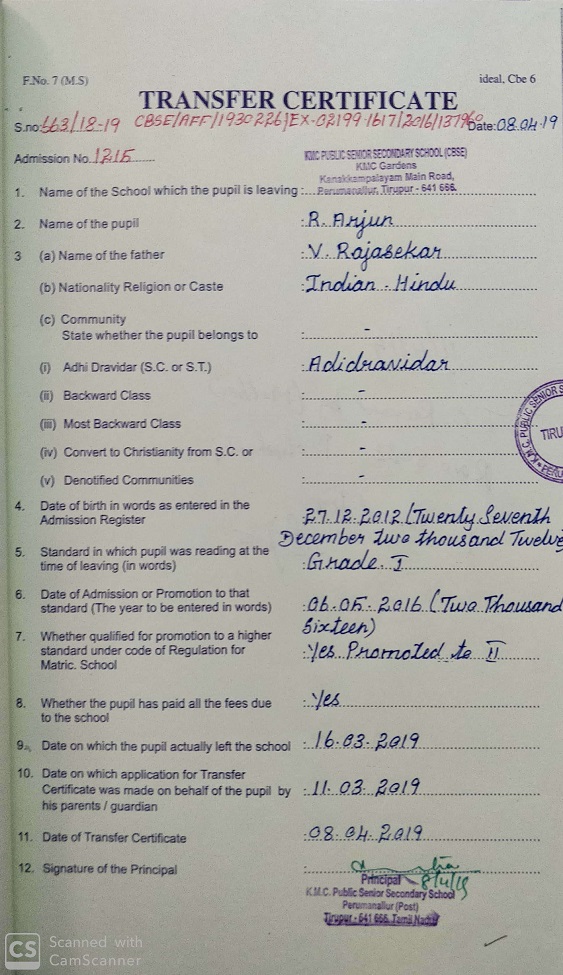 F.No. 7 (M.S)
ideal, Cbe 6
TRANSFER CERTIFICATE
S.no: 663/18-19 CBSE/AFF/1930226/EX-02199-1617/2016/137960 Date: 08.04.19
Admission No. 1215
KMC PUBLIC SENIOR SECONDARY SCHOOL (CBSE)
KMC Gardens
Kanakkampalayam Main Road,
Perumanallur, Tirupur - 641 666.
1. Name of the School which the pupil is leaving :
2. Name of the pupil : R. Arjun
3 (a) Name of the father : V. Rajasekar
(b) Nationality Religion or Caste : Indian - Hindu
(c) Community
State whether the pupil belongs to : -
(i) Adhi Dravidar (S.C. or S.T.) : Adidravidar
(ii) Backward Class : -
(iii) Most Backward Class : -
(iv) Convert to Christianity from S.C. or : -
(v) Denotified Communities : -
K.M.C. PUBLIC SENIOR S
TIRU
4. Date of birth in words as entered in the
Admission Register : 27.12.2012 (Twenty Seventh
December two thousand Twelve
5. Standard in which pupil was reading at the
time of leaving (in words) : Grade. I
6. Date of Admission or Promotion to that
standard (The year to be entered in words) : 06.05.2016 (Two Thousand
Sixteen)
7. Whether qualified for promotion to a higher
standard under code of Regulation for : Yes Promoted to II
Matric. School
8. Whether the pupil has paid all the fees due : Yes
to the school
9. Date on which the pupil actually left the school : 16.03.2019
10. Date on which application for Transfer
Certificate was made on behalf of the pupil by : 11.03.2019
his parents / guardian
11. Date of Transfer Certificate : 08.04.2019
12. Signature of the Principal :
Principal 8/4/19
K.M.C. Public Senior Secondary School
Perumanallur (Post)
Tirupur - 641 666. Tamil Nadu
CS Scanned with
CamScanner